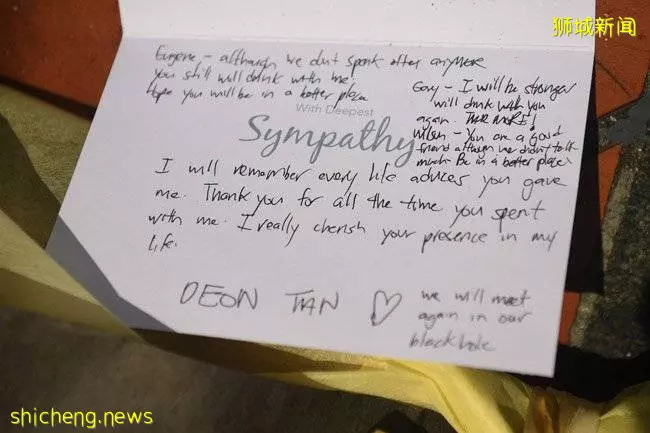 狮城新闻
Eugene - although we dont speak often anymore
you still will drink with me!
Hope you will be in a better place
Gary - I will be stronger
will drink with you
again. TAKE MORE!
Wilson - You are a good
friend although we didn't talk
much. Be in a better place
With Deepest
Sympathy
I will remember every life advices you gave
me. Thank you for all the time you spent
with me. I really cherish your presence in my
life.
DEON TAN
we will meet
again in our
blackhole
shicheng.news